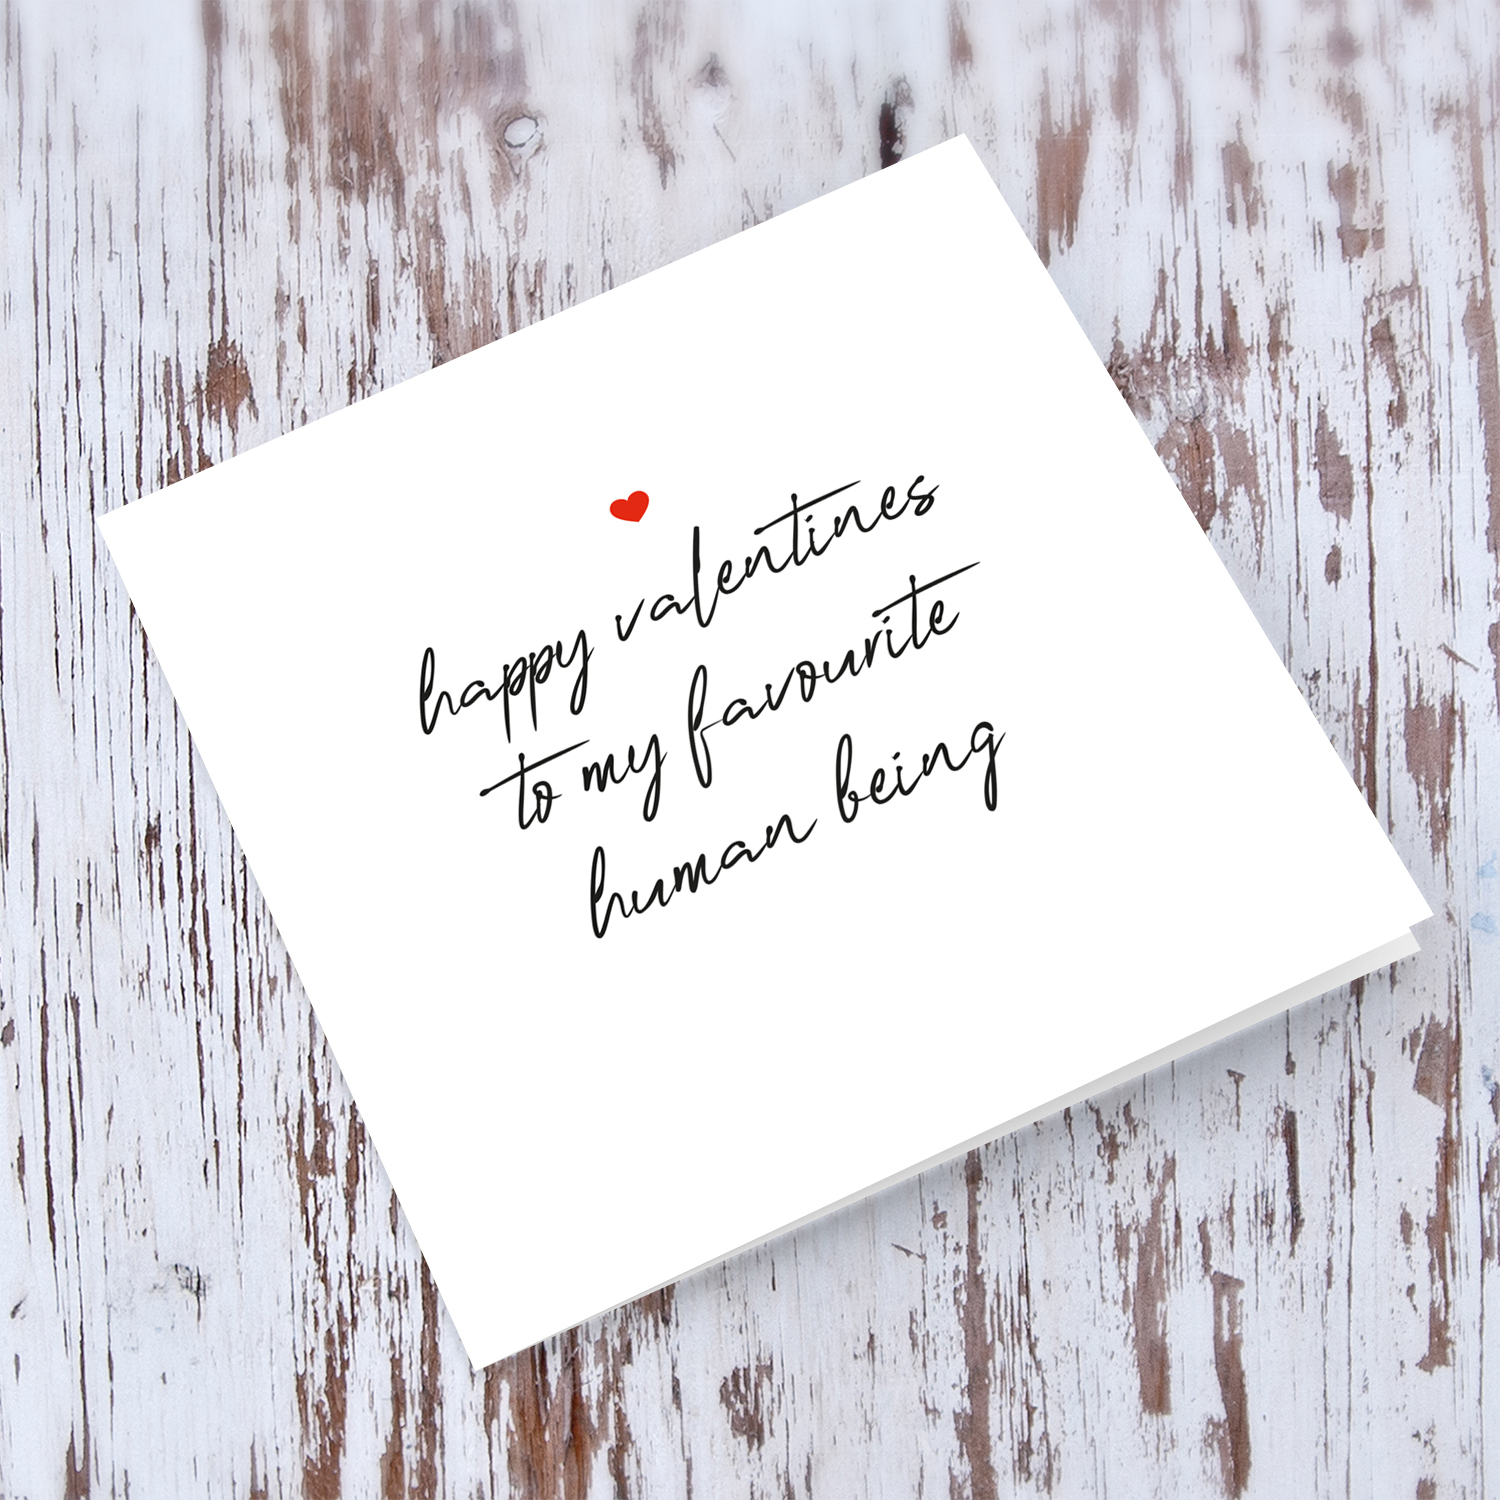 happy valentines
to my favourite
human being